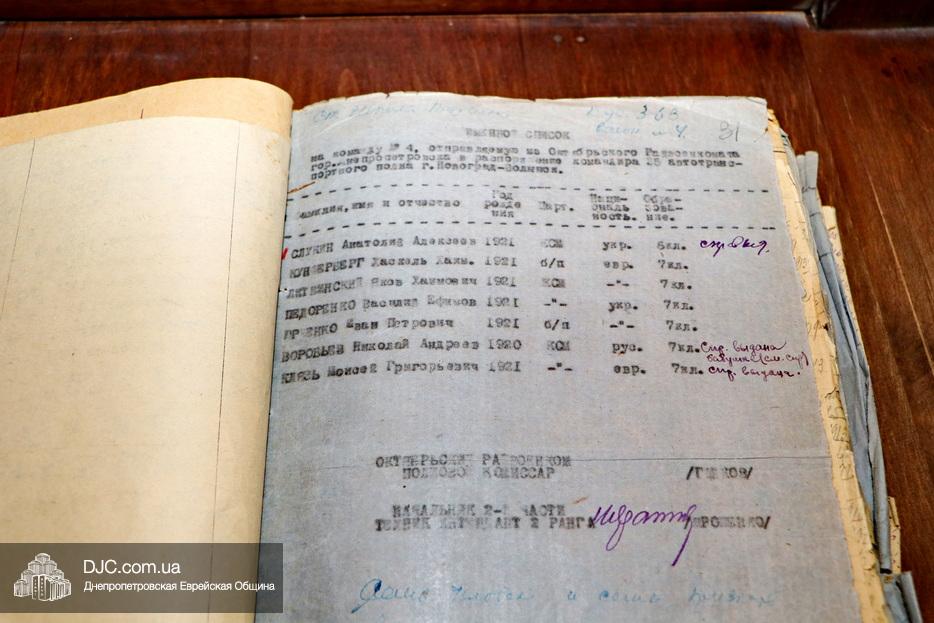 Вагон № 4. 31
ИМЕННОЙ СПИСОК
на команду № 4, отправляемую из Октябрьского Райвоенкомата
гор. непропетровска в распоряжение командира 25 автотранс-
портного полка г.Новоград-Волынск.
Фамилия,имя и отчество Год рожде ния Парт. Наци- ональ ность. Обра- зова- ние.
СЛУКИН Анатолий Алексеев 1921 КСМ укр. 6кл.
КУНЦЕРБЕРГ Хаскель Хаим. 1921 б/п евр. 7кл.
ЛИТВИНСКИЙ Яков Хаимович 1921 КСМ -"- 7кл.
ПЕДОРЕНКО Василий Ефимов 1921 -"- укр. 7кл.
Иван Петрович 1921 б/п -"- 7кл.
ВОРОБЬЕВ Николай Андреев 1920 КСМ рус. 7кл. Спр. выдана
бабушке (см. спр)
КНЯЗЬ Моисей Григорьевич 1921 -"- евр. 7кл. спр. выдана.
ОКТЯБРЬСКИЙ РАЙВОЕНКОМ
ПОЛКОВОЙ КОМИССАР
НАЧАЛЬНИК 2-Й ЧАСТИ
ТЕХНИК ИНТЕНДАНТ 2 РАНГА
человек и
DJC.com.ua
Днепропетровская Еврейская Община